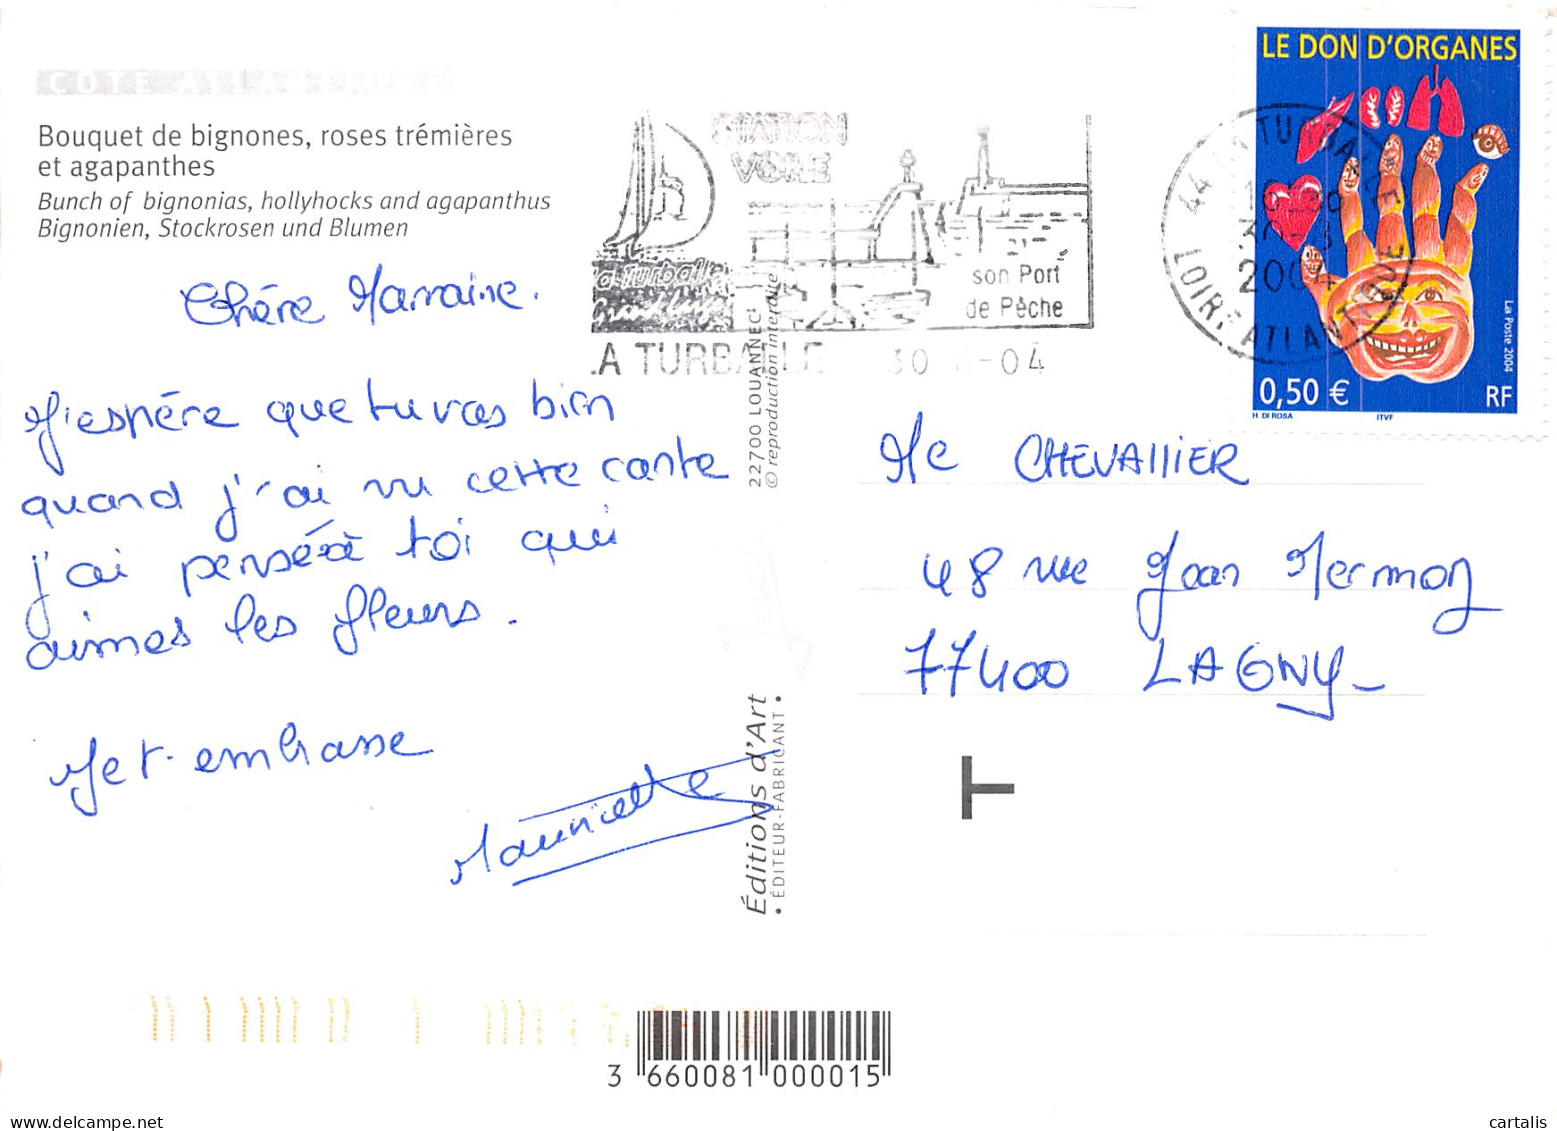 CÔTE ATLANTIQUE
Bouquet de bignones, roses trémières
et agapanthes
Bunch of bignonias, hollyhocks and agapanthus
Bignonien, Stockrosen und Blumen
Chére Marraine.
J'espére que tu vas bien
quand j'ai vu cette carte
j'ai penséé à toi qui
aimes les fleurs.
Je t'embrasse
Mauricette
STATION
VOILE
La Turballe
son Port
de Pêche
LA TURBALLE 30 -04
22700 LOUANNEC
© reproduction interdite
Éditions d'Art
• ÉDITEUR-FABRICANT •
LE DON D'ORGANES
La Poste 2004
0,50 € RF
H. DI ROSA ITVF
44 LA TURBALLE
2004
LOIRE ATLANTIQUE
Me CHEVAllIER
48 rue Jean Mermoz
77400 LAGNY_
T
3 660081 000015
www.cartalis.com
cartalis